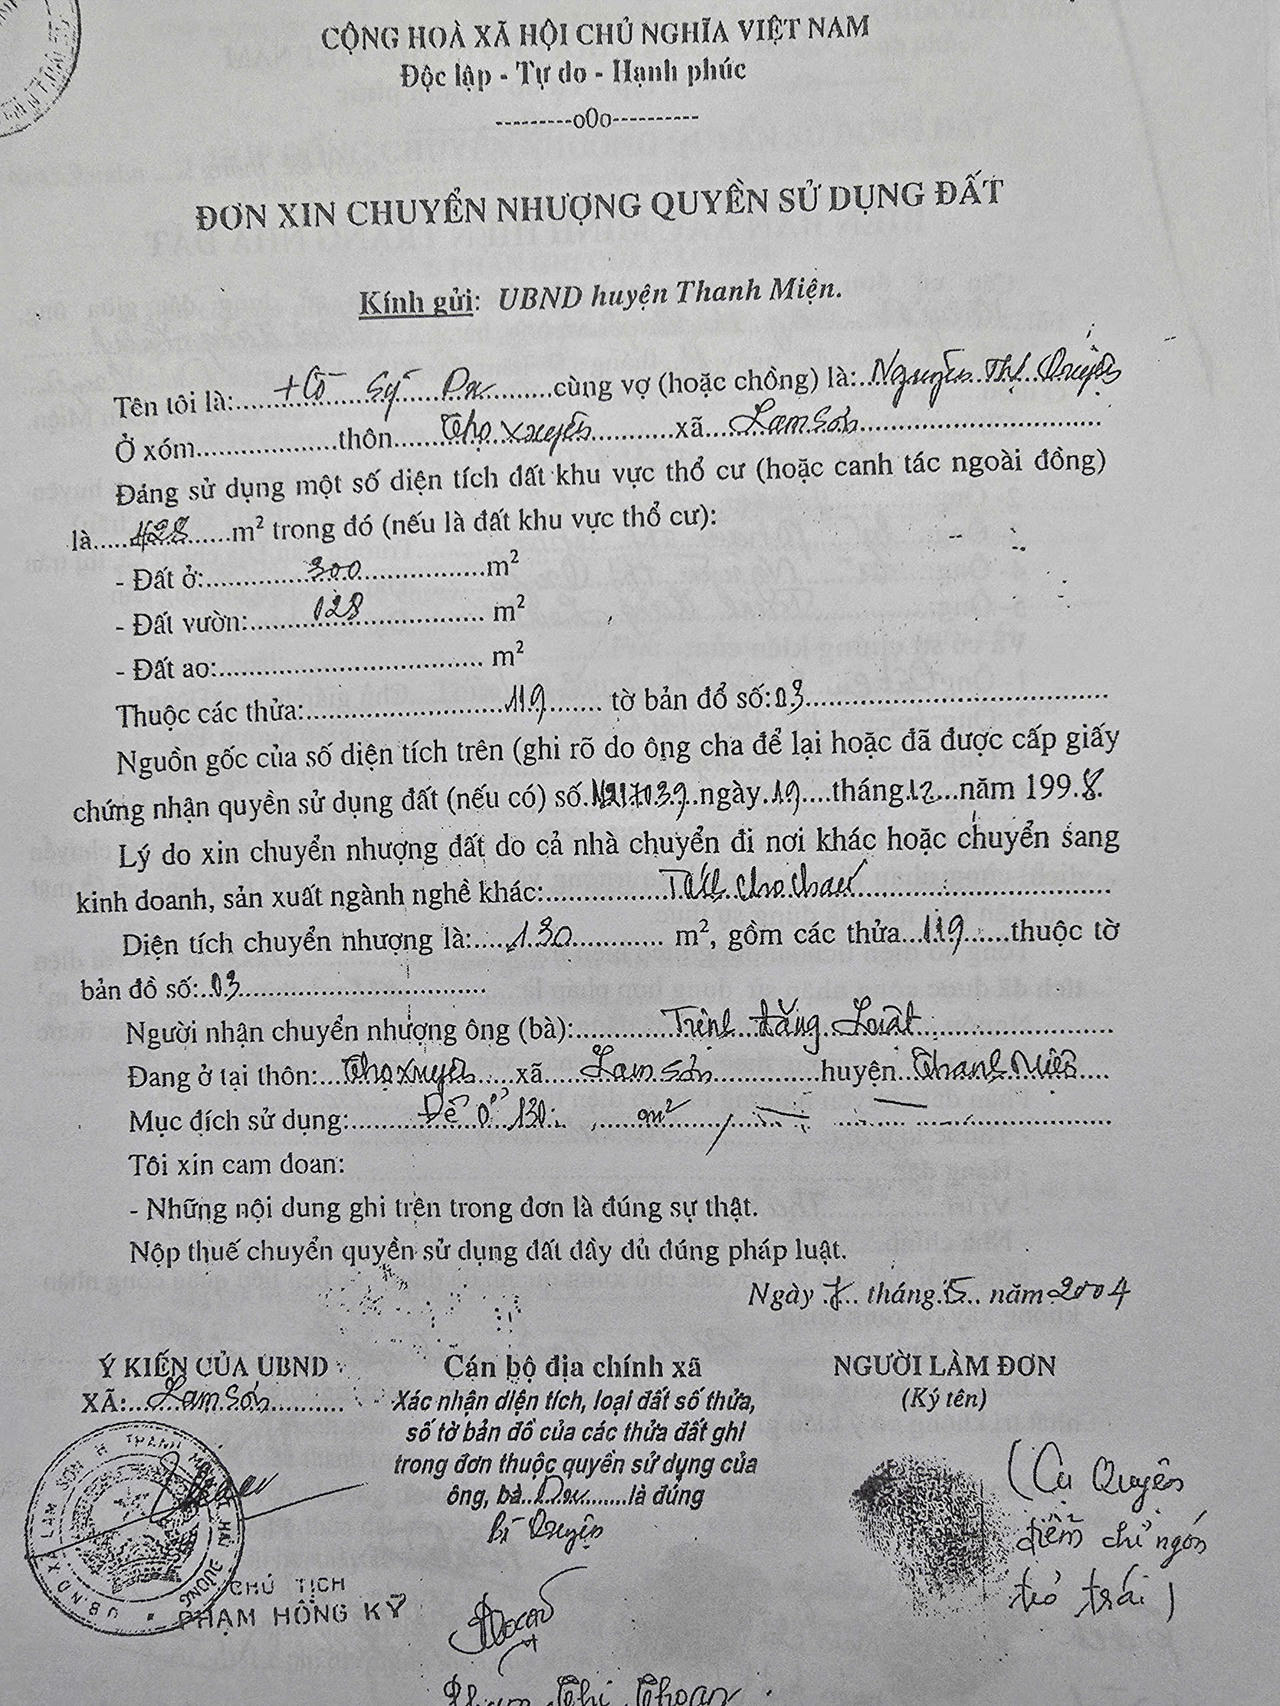 CỘNG HOÀ XÃ HỘI CHỦ NGHĨA VIỆT NAM
Độc lập - Tự do - Hạnh phúc
---------o0o----------
ĐƠN XIN CHUYỂN NHƯỢNG QUYỀN SỬ DỤNG ĐẤT
Kính gửi: UBND huyện Thanh Miện.
Tên tôi là:.......Sỹ.......cùng vợ (hoặc chồng) là:..Nguyễn Thị Quyện
Ở xóm..................thôn......Thọ xuyên...........xã...Lam Sơn..............................
Đang sử dụng một số diện tích đất khu vực thổ cư (hoặc canh tác ngoài đồng)
là.....428......m² trong đó (nếu là đất khu vực thổ cư):
- Đất ở:..............300................m²
- Đất vườn:.........128................. m²
- Đất ao:.................................. m²
Thuộc các thửa:..........................119....... tờ bản đồ số:03.......................................
Nguồn gốc của số diện tích trên (ghi rõ do ông cha để lại hoặc đã được cấp giấy
chứng nhận quyền sử dụng đất (nếu có) số.N217039..ngày.19....tháng.12...năm 1998.
Lý do xin chuyển nhượng đất do cả nhà chuyển đi nơi khác hoặc chuyển sang
kinh doanh, sản xuất ngành nghề khác:...............cho cháu.................................
Diện tích chuyển nhượng là:.....130............. m², gồm các thửa...119......thuộc tờ
bản đồ số:..03................................
Người nhận chuyển nhượng ông (bà):............Trịnh đăng Luật............................
Đang ở tại thôn:...Thọ xuyên.....xã......Lam Sơn..............huyện..Thanh Miện....
Mục đích sử dụng:.........Để ở 130.........m²
Tôi xin cam đoan:
- Những nội dung ghi trên trong đơn là đúng sự thật.
Nộp thuế chuyển quyền sử dụng đất đầy đủ đúng pháp luật.
Ngày .... tháng.5.. năm 2004
Ý KIẾN CỦA UBND
XÃ:...Lam Sơn..........
Cán bộ địa chính xã
Xác nhận diện tích, loại đất số thửa,
số tờ bản đồ của các thửa đất ghi
trong đơn thuộc quyền sử dụng của
ông, bà...........là đúng
Bà Quyện
Phạm Thị Thoan
NGƯỜI LÀM ĐƠN
(Ký tên)
(Cụ Quyện
điểm chỉ ngón
trỏ trái)
U.B.N.D XÃ LAM SƠN H. THANH MIỆN HẢI DƯƠNG
CHỦ TỊCH
PHẠM HỒNG KỲ